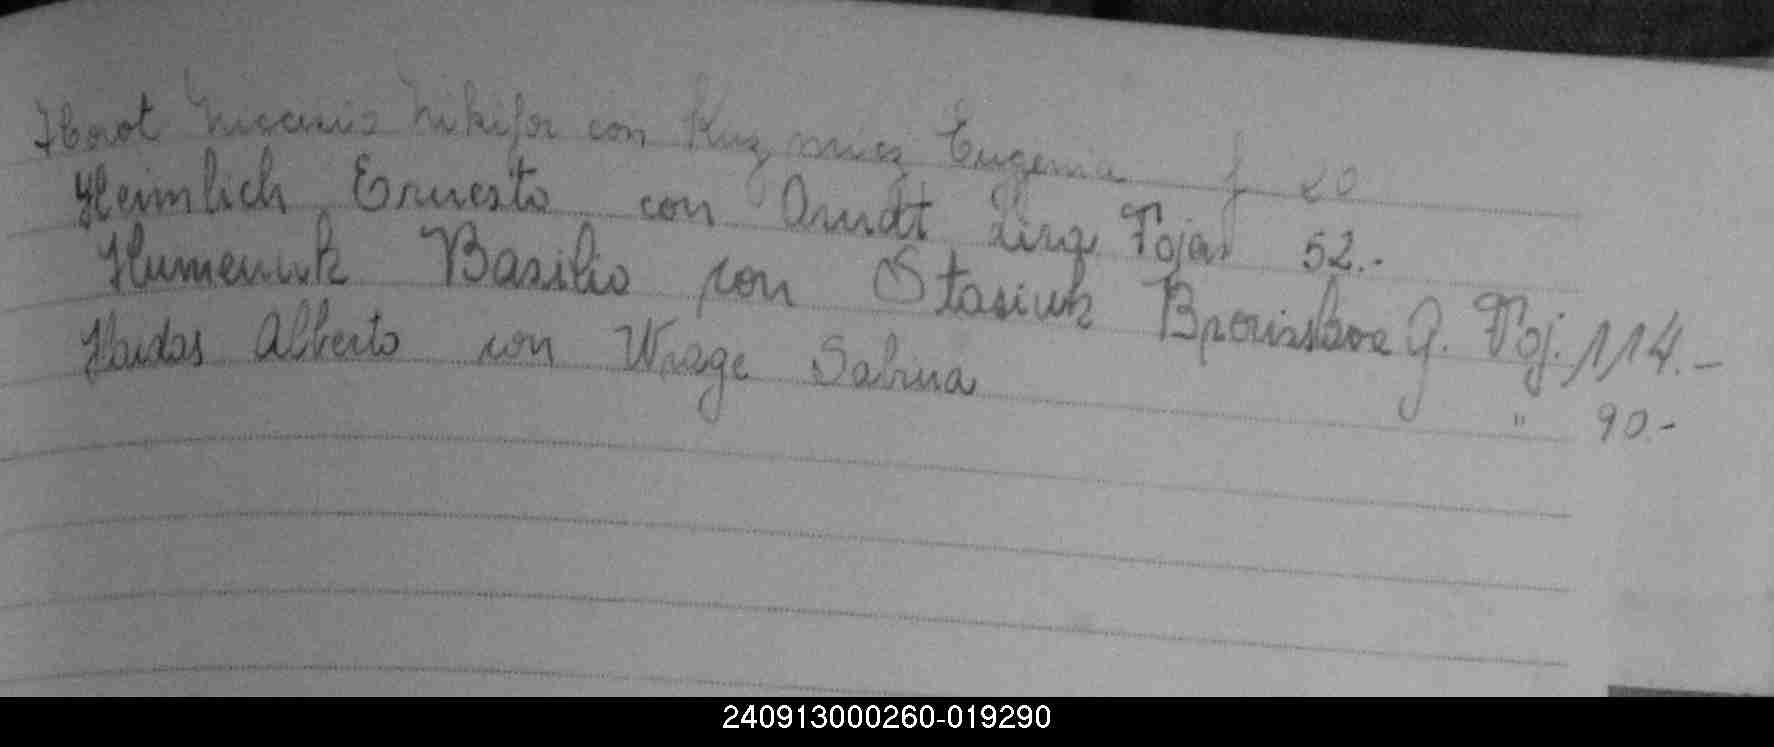 Horot Nikifor con Kuzmicz Eugenia f 20
Heimlich Ernesto con Arndt Foja 52.-
Humeniuk Basilio con Stasiuk G. Foj. 114.-
Haidas Alberto con Wrage Sabina " 90.-
240913000260-019290